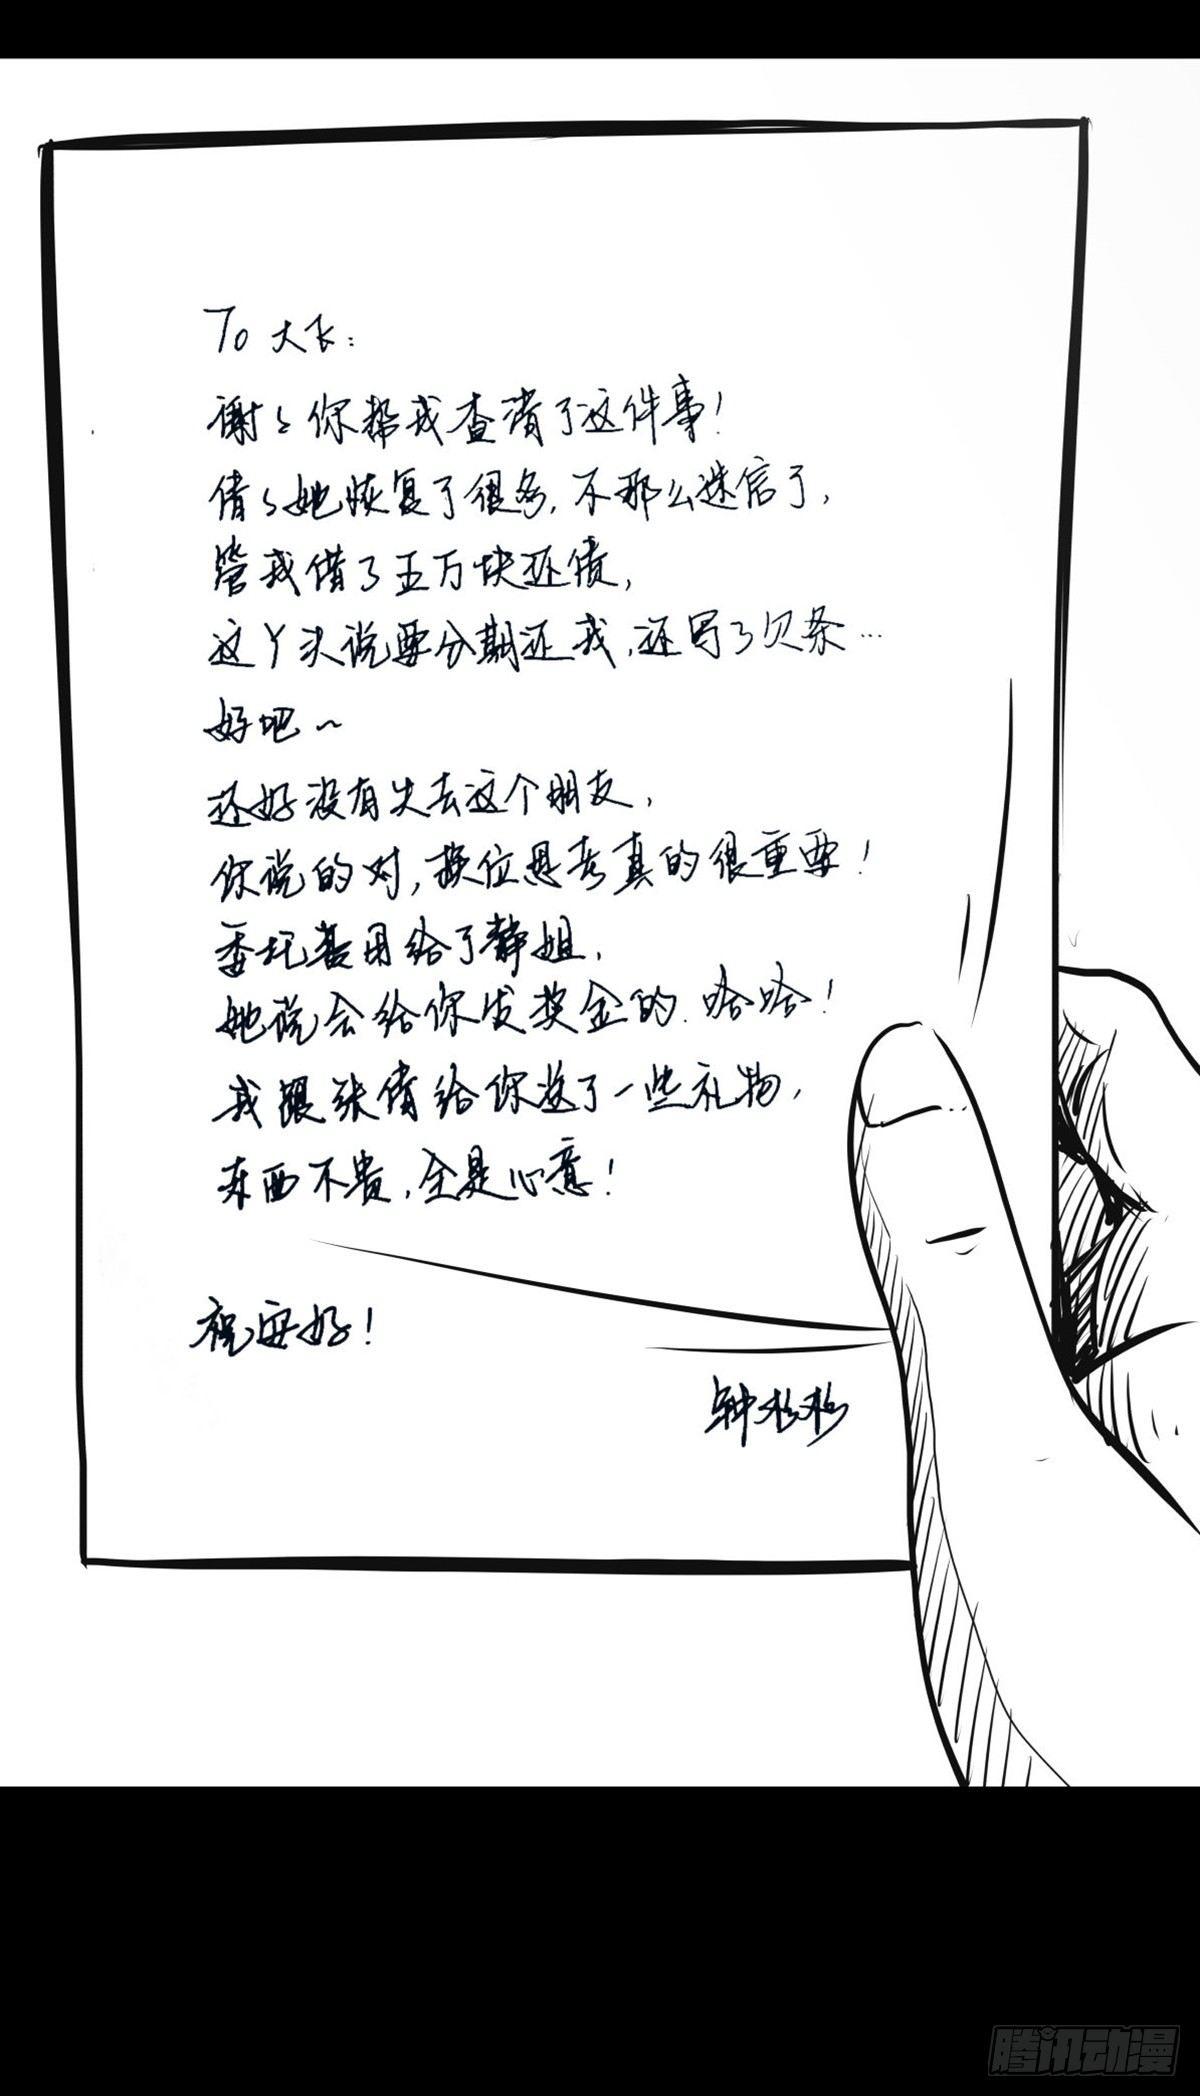 To 大飞:
谢谢你帮我查清了这件事!
倩倩她恢复了很多,不那么迷信了,
管我借了五万块还债,
这丫头说要分期还我,还写了欠条…
好吧~
还好没有失去这个朋友,
你说的对,换位思考真的很重要!
委托费用给了静姐,
她说会给你发奖金的.哈哈!
我跟张倩给你送了一些礼物,
东西不贵,全是心意!
祝安好!
钟杉杉
腾讯动漫